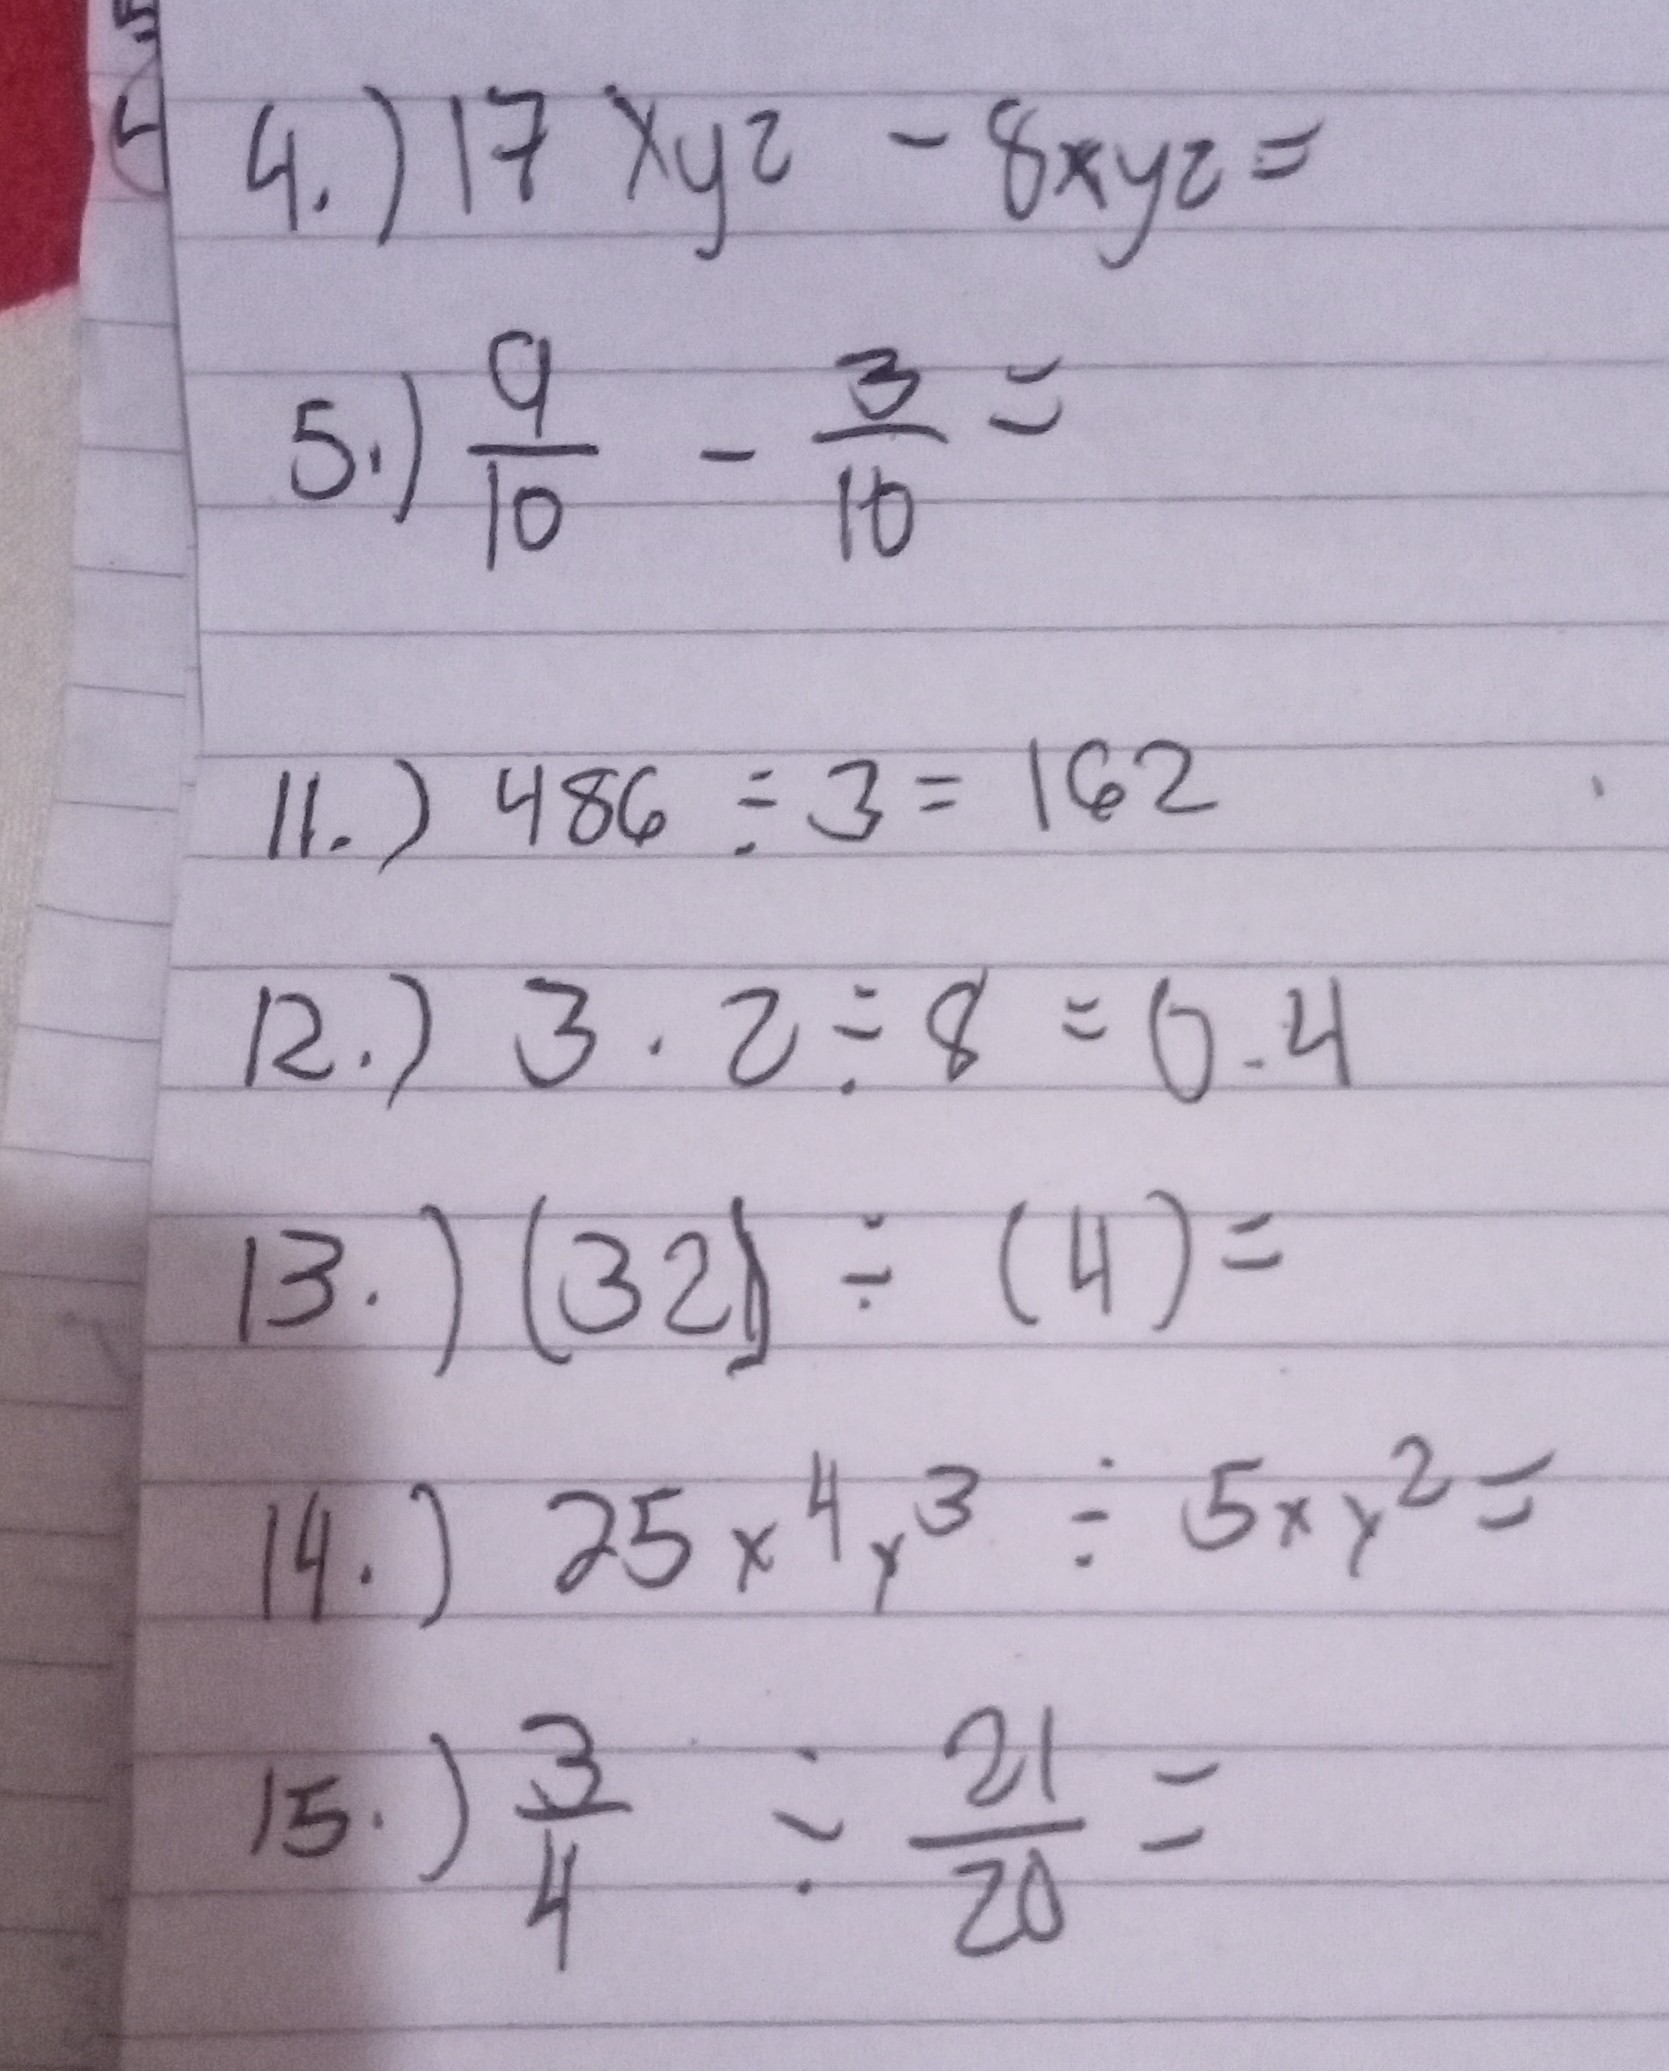 4.) 17 xyz - 8xyz =
5.) 9/10 - 3/10 =
11.) 486 ÷ 3 = 162
12.) 3.2 ÷ 8 = 0.4
13.) (32) ÷ (4) =
14.) 25x⁴y³ ÷ 5xy² =
15.) 3/4 ÷ 21/20 =